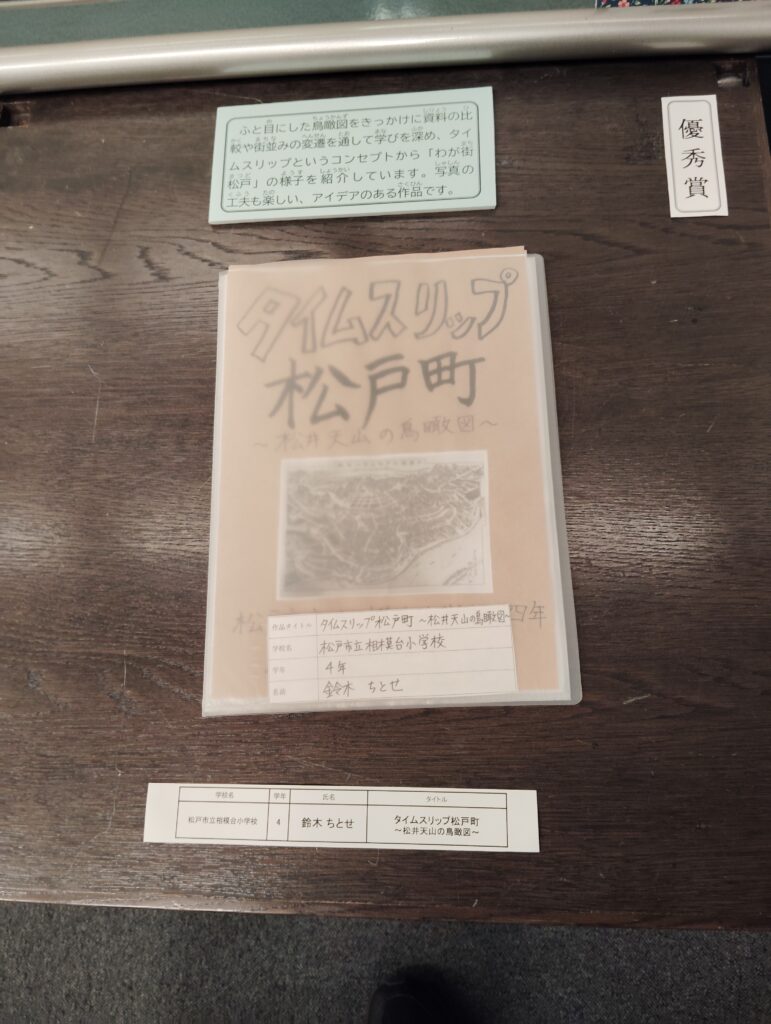 ふと目にした鳥瞰図をきっかけに資料の比
較や街並みの変遷を通して学びを深め、タイ
ムスリップというコンセプトから「わが街
松戸」の様子を紹介しています。写真の
工夫も楽しい、アイデアのある作品です。
優秀賞
タイムスリップ
松戸町
～松井天山の鳥瞰図～
松 四年
作品タイトル タイムスリップ松戸町 ～松井天山の鳥瞰図～
学校名 松戸市立相模台小学校
学年 4年
名前 鈴木 ちとせ
学校名 学年 氏名 タイトル
松戸市立相模台小学校 4 鈴木 ちとせ タイムスリップ松戸町
～松井天山の鳥瞰図～